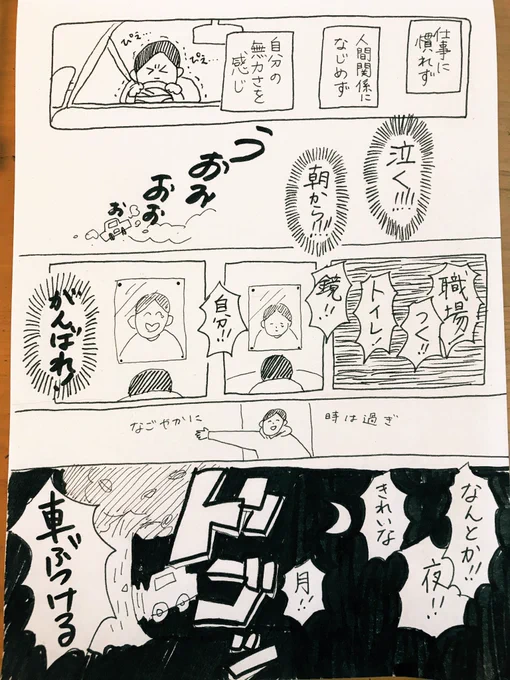 仕事に
慣れず
人間関係に
なじめず
自分の
無力さを
感じ
ぴえ…
ぴえ…
泣く!!!
朝から!!!
う
おみ
おお
お
職場!
つく!!
トイレ!
鏡!!
自分!!
がんばれ!
時は過ぎ
なごやかに
なんとか!!!
夜!!
きれいな
月!!
ドン
車ぶつける